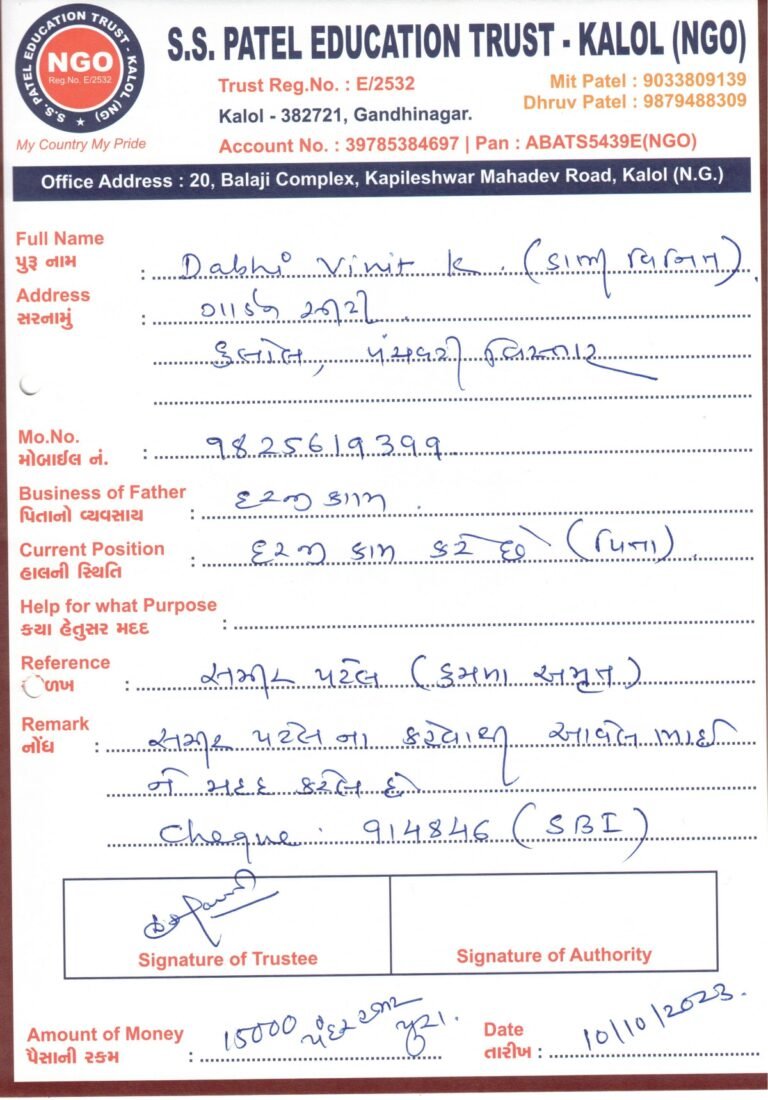 S.S. PATEL EDUCATION TRUST - KALOL (NG)
NGO
Reg.No. E/2532
My Country My Pride
S.S. PATEL EDUCATION TRUST - KALOL (NGO)
Trust Reg.No. : E/2532
Mit Patel : 9033809139
Kalol - 382721, Gandhinagar.
Dhruv Patel : 9879488309
Account No. : 39785384697 | Pan : ABATS5439E(NGO)
Office Address : 20, Balaji Complex, Kapileshwar Mahadev Road, Kalol (N.G.)
Full Name
પુરૂ નામ : Dabhi Vinit K. (ડાભી વિનિત)
Address
સરનામું :
કલોલ, પંચવટી વિસ્તાર
Mo.No.
મોબાઈલ નં. : 9825619399
Business of Father
પિતાનો વ્યવસાય : દરજી કામ
Current Position
હાલની સ્થિતિ : દરજી કામ કરે છે (પિતા)
Help for what Purpose
કયા હેતુસર મદદ :
Reference
ળખ : પટેલ ( અમૃત)
Remark
નોંધ : પટેલ ના કહેવાથી આવેલ ભાઈ
ને મદદ કરેલ છે
Cheque 914846 (SBI)
Signature of Trustee
Signature of Authority
Amount of Money
પૈસાની રકમ : 15000 પંદર હજાર પુરા.
Date
તારીખ : 10/10/2023.